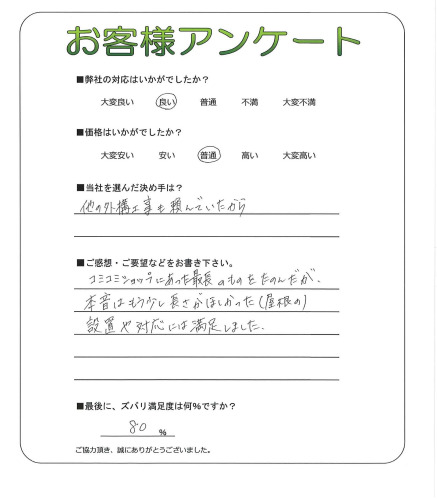 お客様アンケート
■弊社の対応はいかがでしたか?
大変良い 良い 普通 不満 大変不満
■価格はいかがでしたか?
大変安い 安い 普通 高い 大変高い
■当社を選んだ決め手は?
他の外構工事も頼んでいたから
■ご感想・ご要望などをお書き下さい。
コミコミショップにあった最長のものをたのんだが、
本音はもう少し長さがほしかった(屋根の)
設置や対応には満足しました。
■最後に、ズバリ満足度は何%ですか?
80 %
ご協力頂き、誠にありがとうございました。